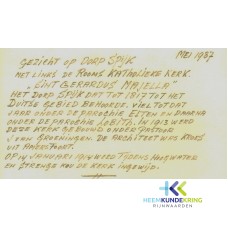 MEI 1987
GEZICHT OP DORP SPYK
MET LINKS DE ROOMS KATHOLIEKE KERK.
"SINT GERARDUS MAJELLA"
HET DORP SPYK DAT TOT 1817 TOT HET
DUITSE GEBIED BEHOORDE. VIEL TOT DAT
JAAR ONDER DE PAROCHIE ELTEN EN DAARNA
ONDER DE PAROCHIE LOBITH. IN 1913 WERD
DEZE KERK GEBOUWD ONDER PASTOOR
VAN GROENINGEN. DE ARCHITEKT WAS KROES
UIT AMERSFOORT.
OP IN JANUARI 1914 WERD TYDENS HOOGWATER
EN STRENGE KOU DE KERK INGEWIJD.
HEEMKUNDEKRING
RIJNWAARDEN